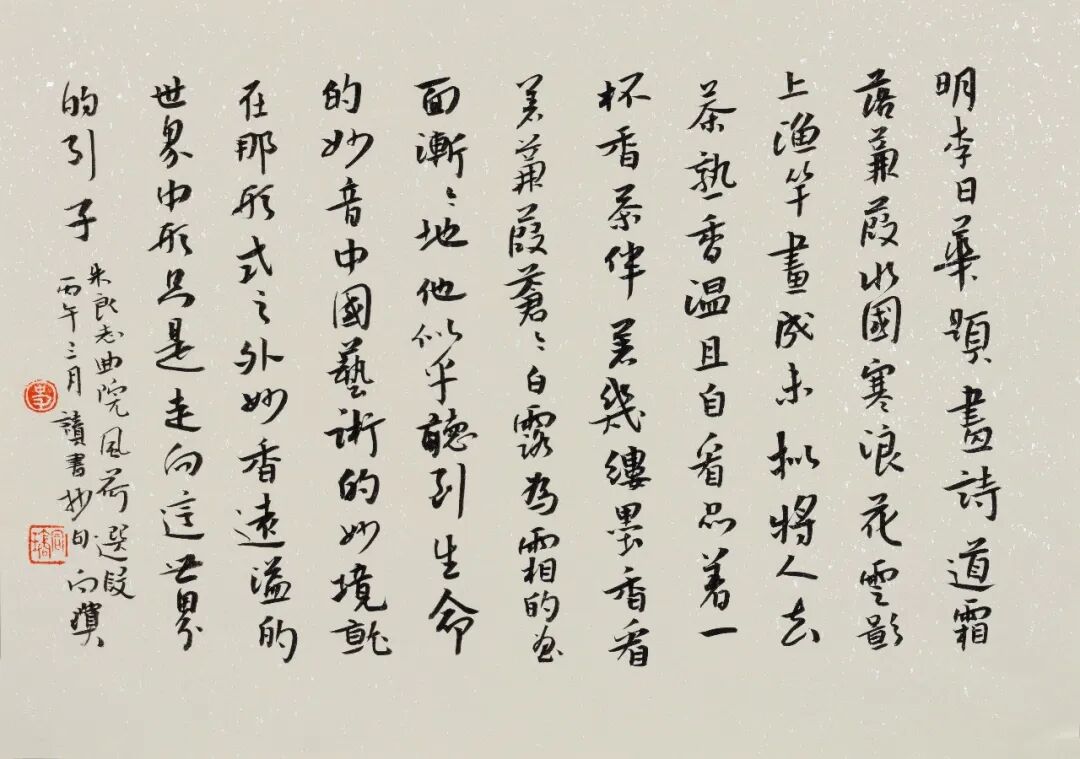 明李日華題畫詩道霜
落蒹葭水國寒浪花雲影
上漁竿畫成未拟將人去
茶熟香温且自看品着一
杯香茶伴着幾縷墨香看
着蒹葭蒼〻白露為霜的画
面漸〻地他似乎聽到生命
的妙音中國藝術的妙境就
在那形式之外妙香遠溢的
世界中形只是走向這世界
的引子
朱良志曲院風荷選段
丙午三月讀書抄句向